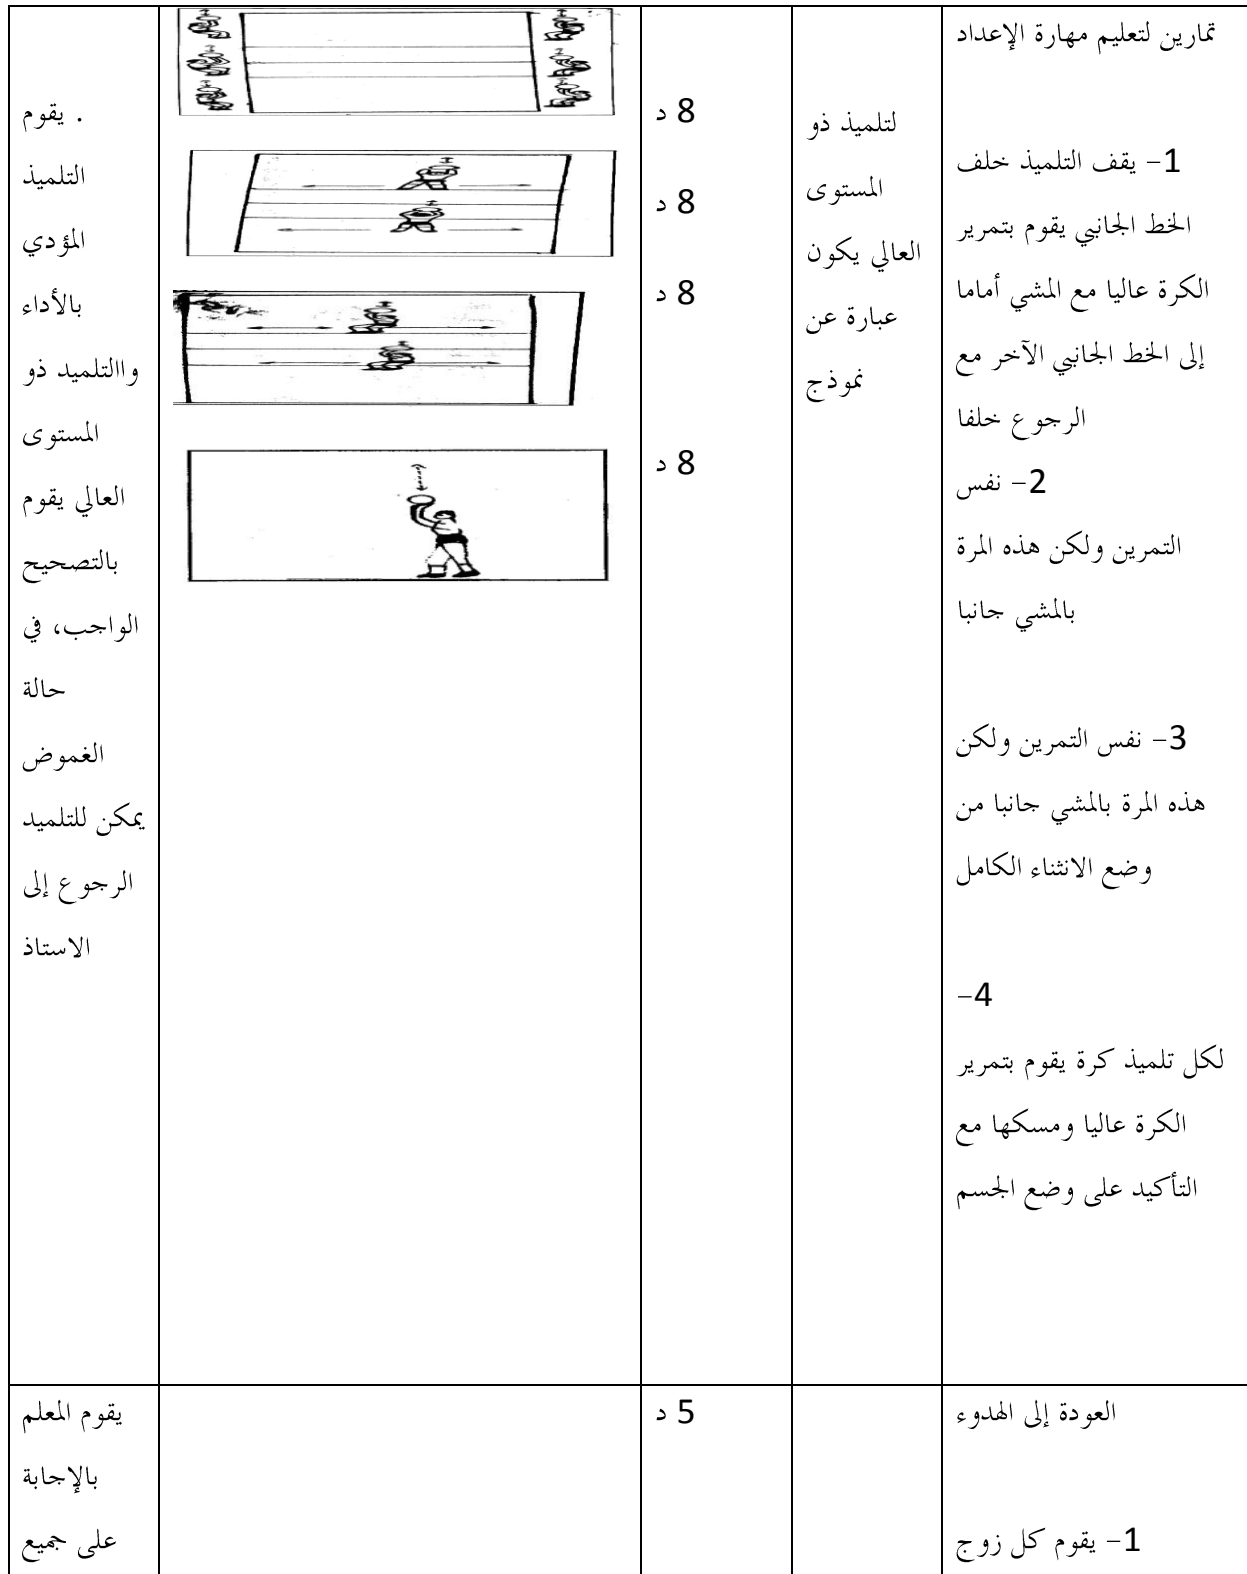 تمارين لتعليم مهارة الإعداد
1- يقف التلميذ خلف
الخط الجانبي يقوم بتمرير
الكرة عاليا مع المشي أماما
إلى الخط الجانبي الآخر مع
الرجوع خلفا
2- نفس
التمرين ولكن هذه المرة
بالمشي جانبا
3- نفس التمرين ولكن
هذه المرة بالمشي جانبا من
وضع الانثناء الكامل
4-
لكل تلميذ كرة يقوم بتمرير
الكرة عاليا ومسكها مع
التأكيد على وضع الجسم
لتلميذ ذو
المستوى
العالي يكون
عبارة عن
نموذج
8 د
8 د
8 د
8 د
. يقوم
التلميذ
المؤدي
بالأداء
واالتلميد ذو
المستوى
العالي يقوم
بالتصحيح
الواجب، في
حالة
الغموض
يمكن للتلميد
الرجوع إلى
الاستاذ
العودة إلى الهدوء
1- يقوم كل زوج
5 د
يقوم المعلم
بالإجابة
على جميع